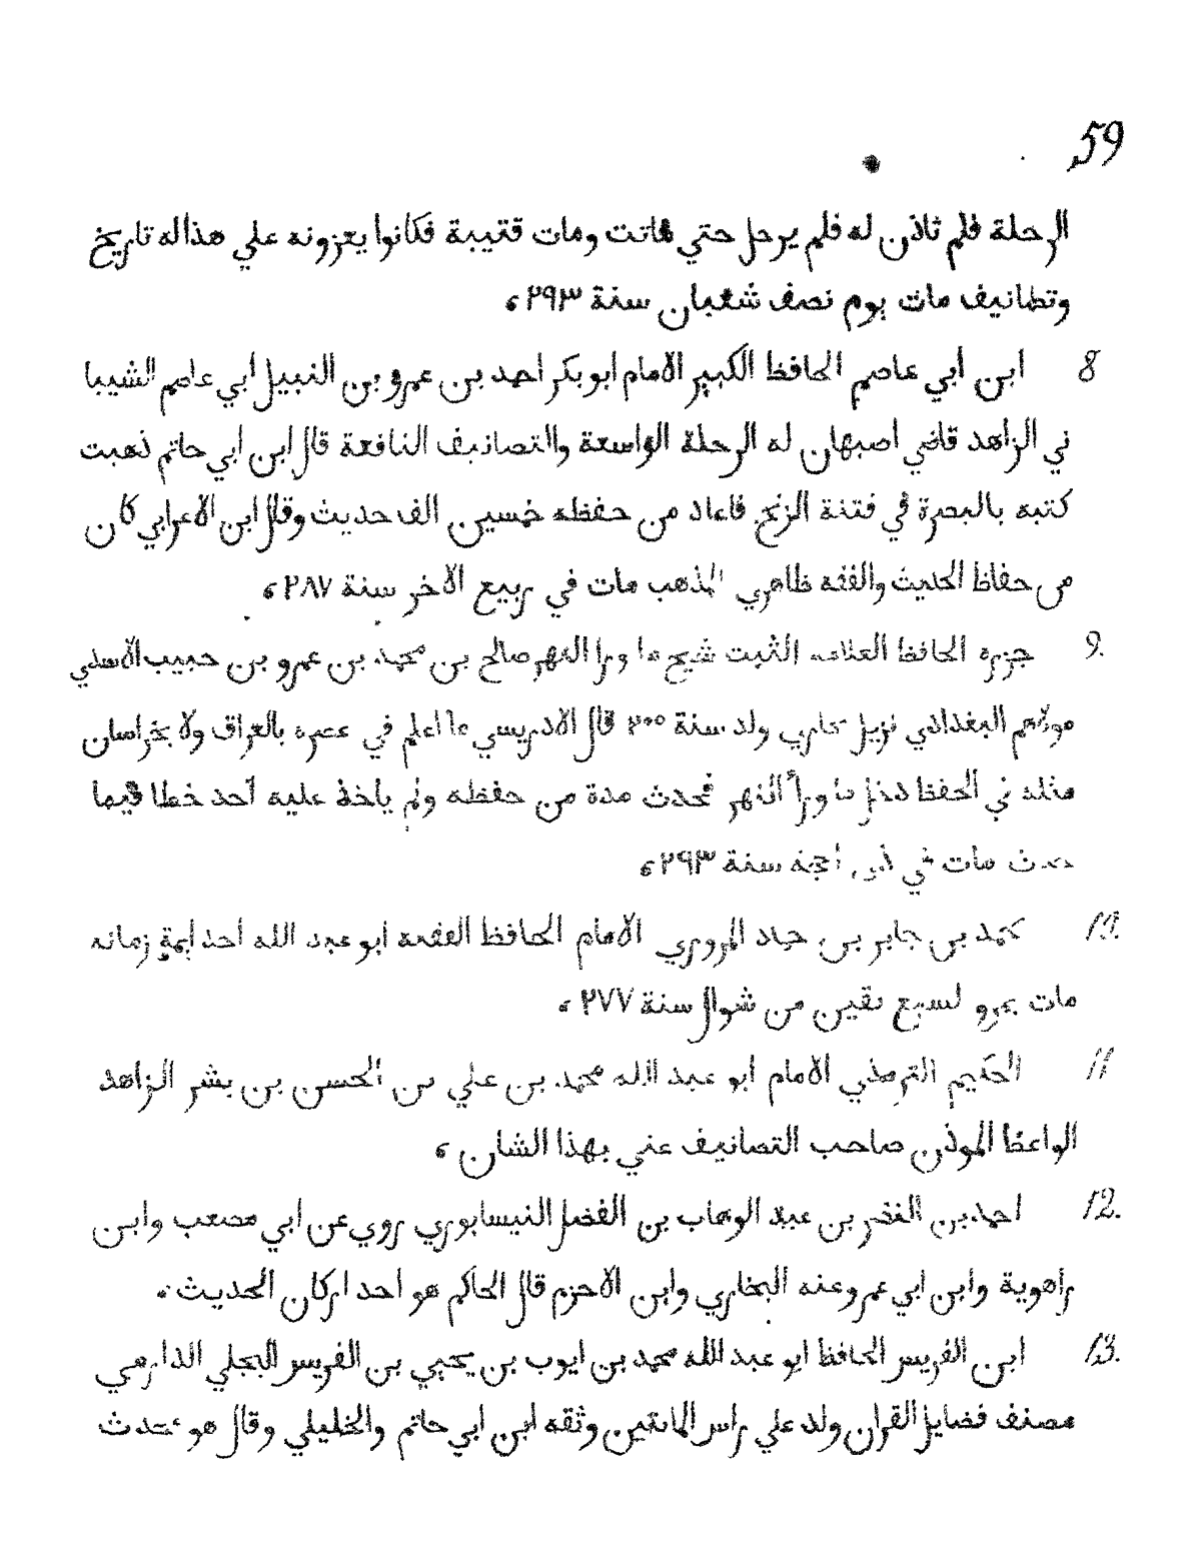 59
الرحلة فلم تاذن له فلم يرحل حتي ماتت ومات قتيبة فكانوا يعزونه علي هذا له تاريخ
وتصانيف مات يوم نصف شعبان سنة ٢٩٣ ء
8 ابن أبي عاصم الحافظ الكبير الامام ابو بكر احمد بن عمرو بن النبيل أبي عاصم الشيبا
ني الزاهد قاضي اصبهان له الرحلة الواسعة والتصانيف النافعة قال ابن ابي حاتم ذهبت
كتبه بالبصرة في فتنة الزنج فاعاد من حفظه خمسين الف حديث وقال ابن الاعرابي كان
من حفاظ الحديث والفقه ظاهري المذهب مات في ربيع الاخر سنة ٢٨٧ ء
9. جزره الحافظ العلامه الثبت شيخ ما ورا النهر صالح بن محمد بن عمرو بن حبيب الاسدي
مولاهم البغدادي نزيل بخاري ولد سنة ٢٠٠ قال الادريسي ما اعلم في عصره بالعراق ولا بخراسان
مثله في الحفظ دخل ما ورأ النهر فحدث مدة من حفظه ولم ياخذ عليه أحد خطا فيما
حدث مات في ذي اجة سنة ٢٩٣ ء
10. محمد بن جابر بن حماد المروزي الامام الحافظ الفقيه ابو عبد الله احد ايمة زمانه
مات بمرو لسبع بقين من شوال سنة ٢٧٧ ء
11 الحكيم الترمذي الامام ابو عبد الله محمد بن علي بن الحسن بن بشر الزاهد
الواعظ الموذن صاحب التصانيف عني بهذا الشان ء
12. احمد بن النضر بن عبد الوهاب بن الفضل النيسابوري روي عن ابي مصعب وابن
راهوية وابن ابي عمر وعنه البخاري وابن الاخزم قال الحاكم هو احد اركان الحديث ء
13. ابن الضريس الحافظ ابو عبد الله محمد بن ايوب بن يحيي بن الضريس البجلي الدارمي
مصنف فضايل القران ولد علي راس المايتين وثقه ابن ابي حاتم والخليلي وقال هو محدث